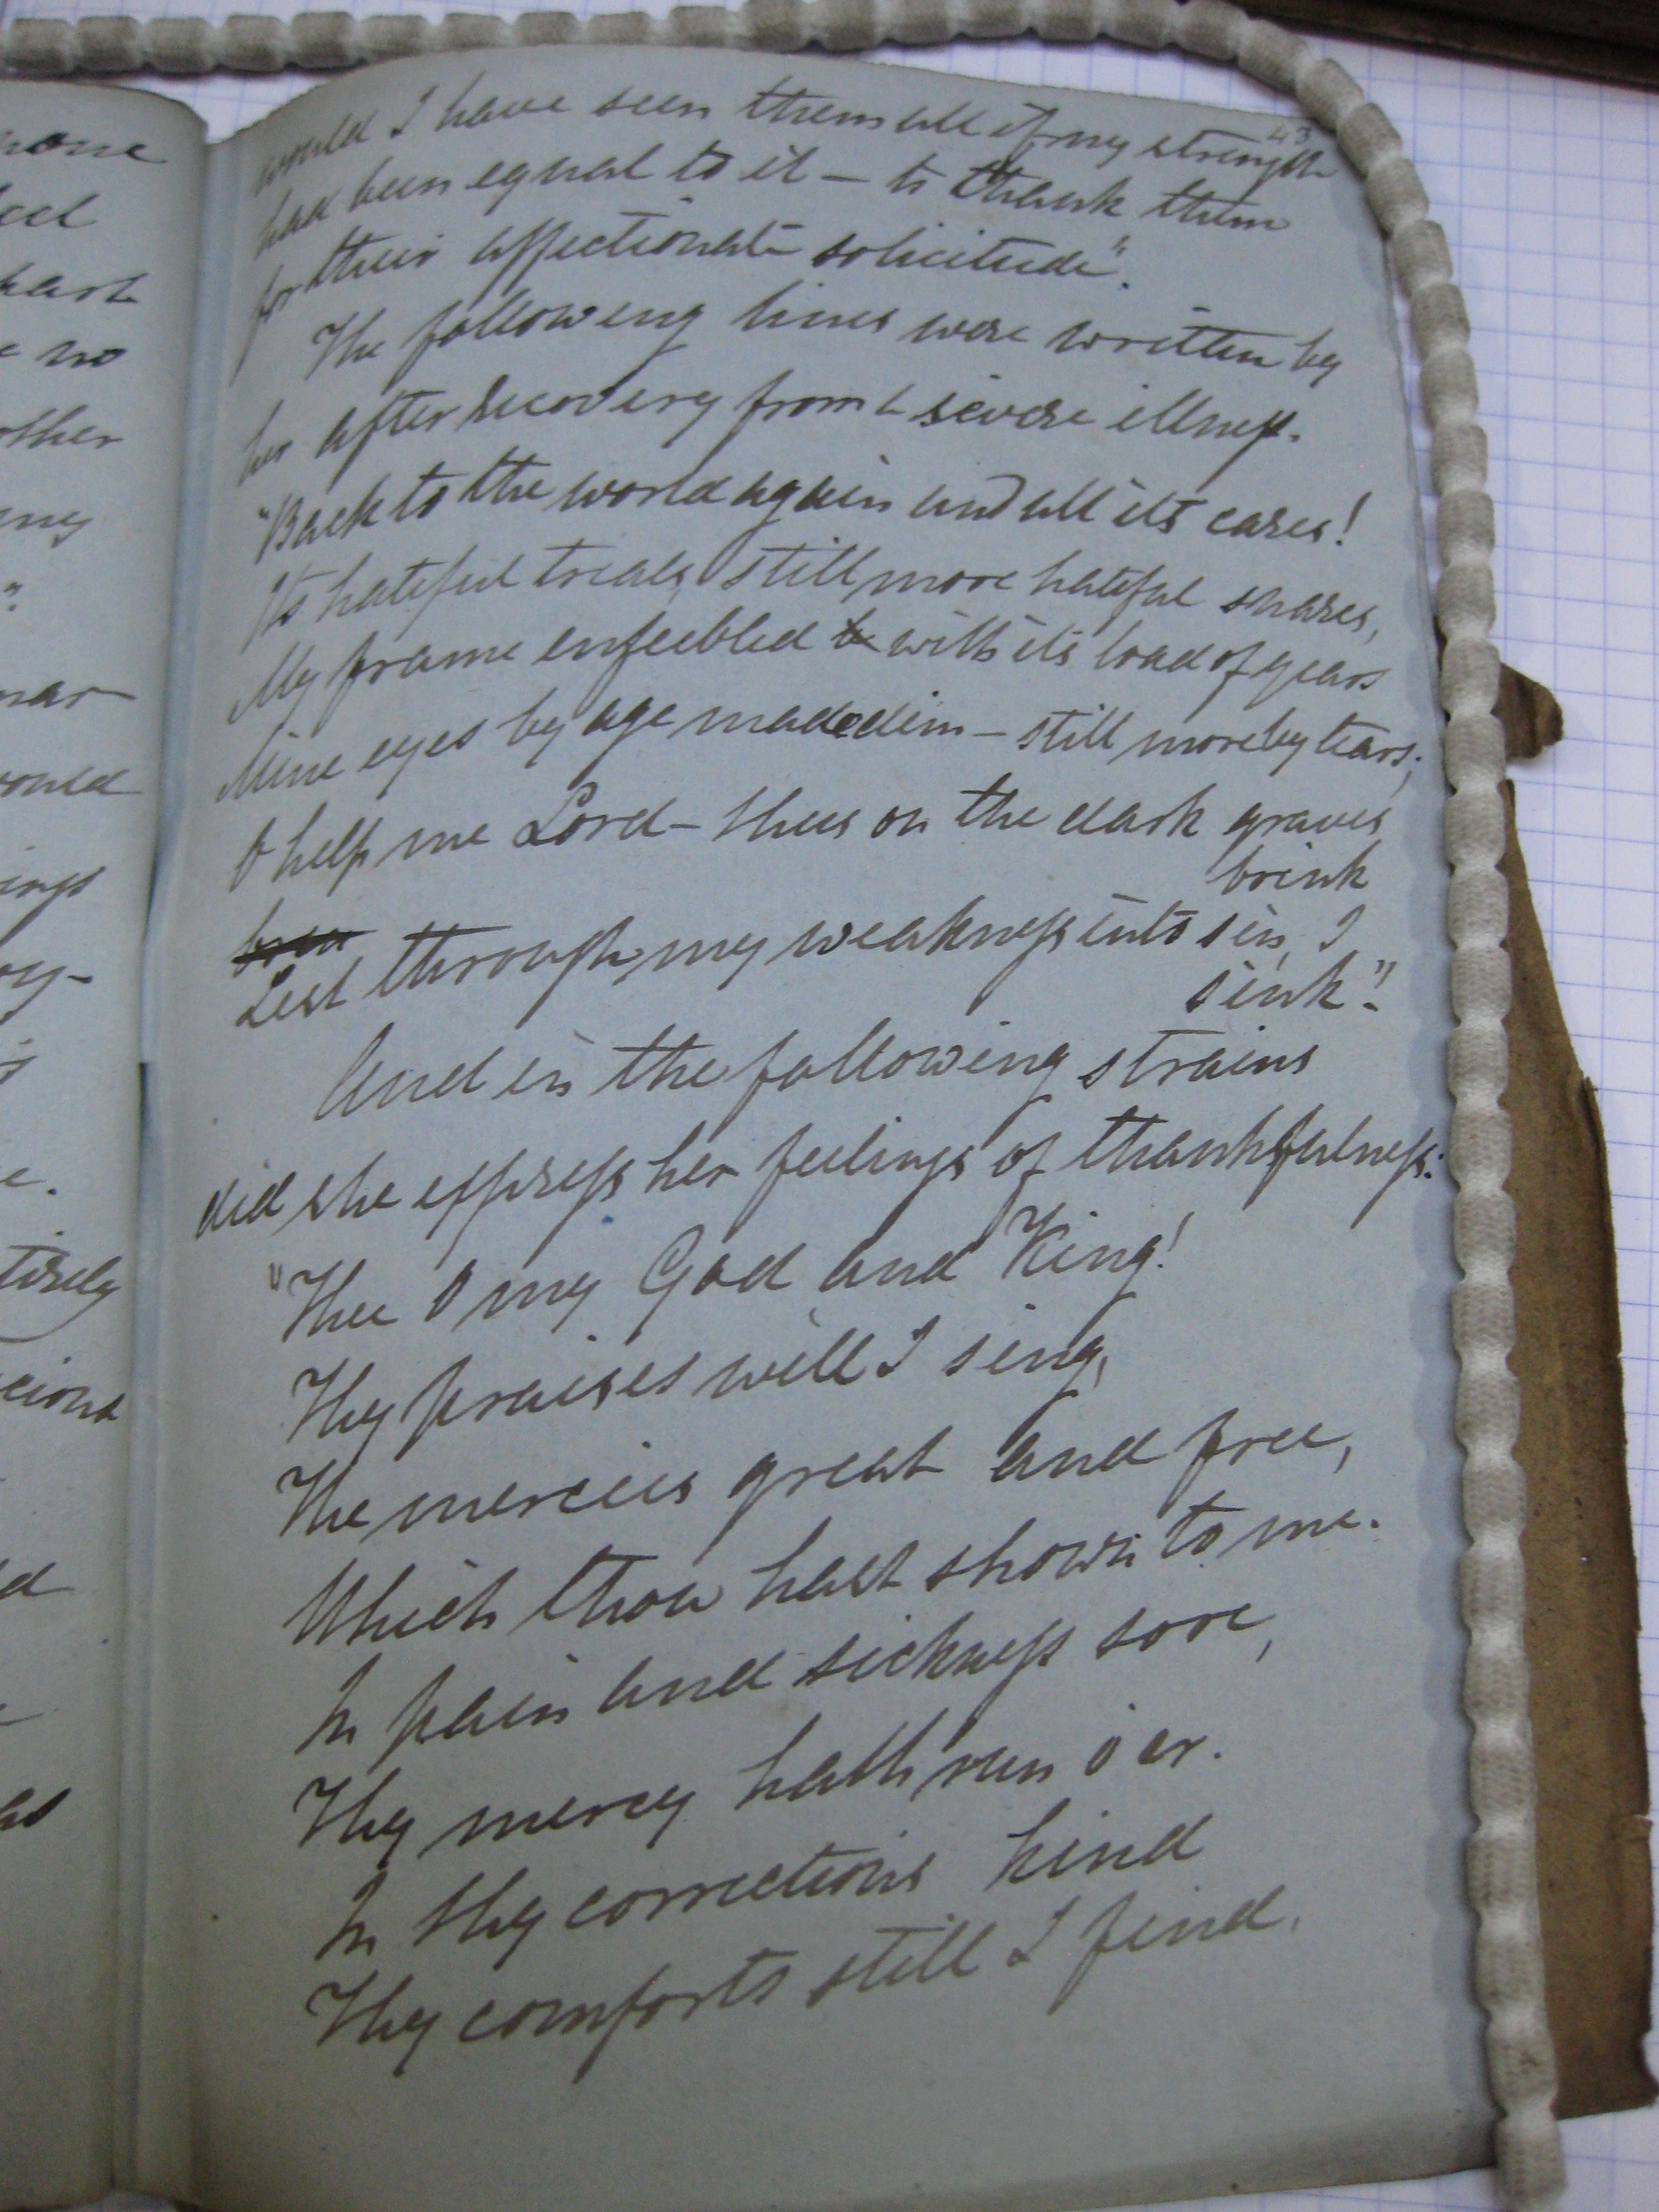 43
would I have seen them all if my strength
had been equal to it – to thank them
for their affectionate solicitude".
The following lines were written by
her after recovery from a severe illness.
"Back to the world again and all its cares!
Its hateful treals, still more hateful snares,
My frame enfeebled with its load of years
Mine eyes by age made dim – still more by tears;
O help me Lord – thus on the dark graves
brink
Lest through my weakness into sin, I
sink".
And in the following strains
did she express her feelings of thankfulness:
"Thee O my God and King!
Thy praises will I sing,
The mercies great and free,
Which thou hast shown to me.
In pain and sickness sore,
Thy mercy hath run o'er.
In thy corrections kind
Thy comforts still I find.